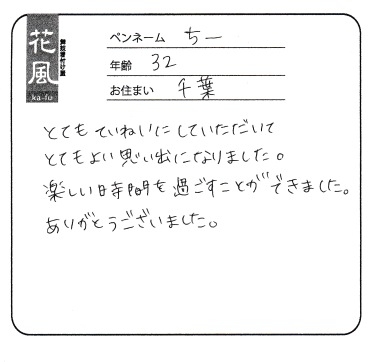 花風
ka-fu
ペンネーム ちー
年齢 32
お住まい 千葉
とてもていねいにしていただいて
とてもよい思い出になりました。
楽しい時間を過ごすことができました。
ありがとうございました。